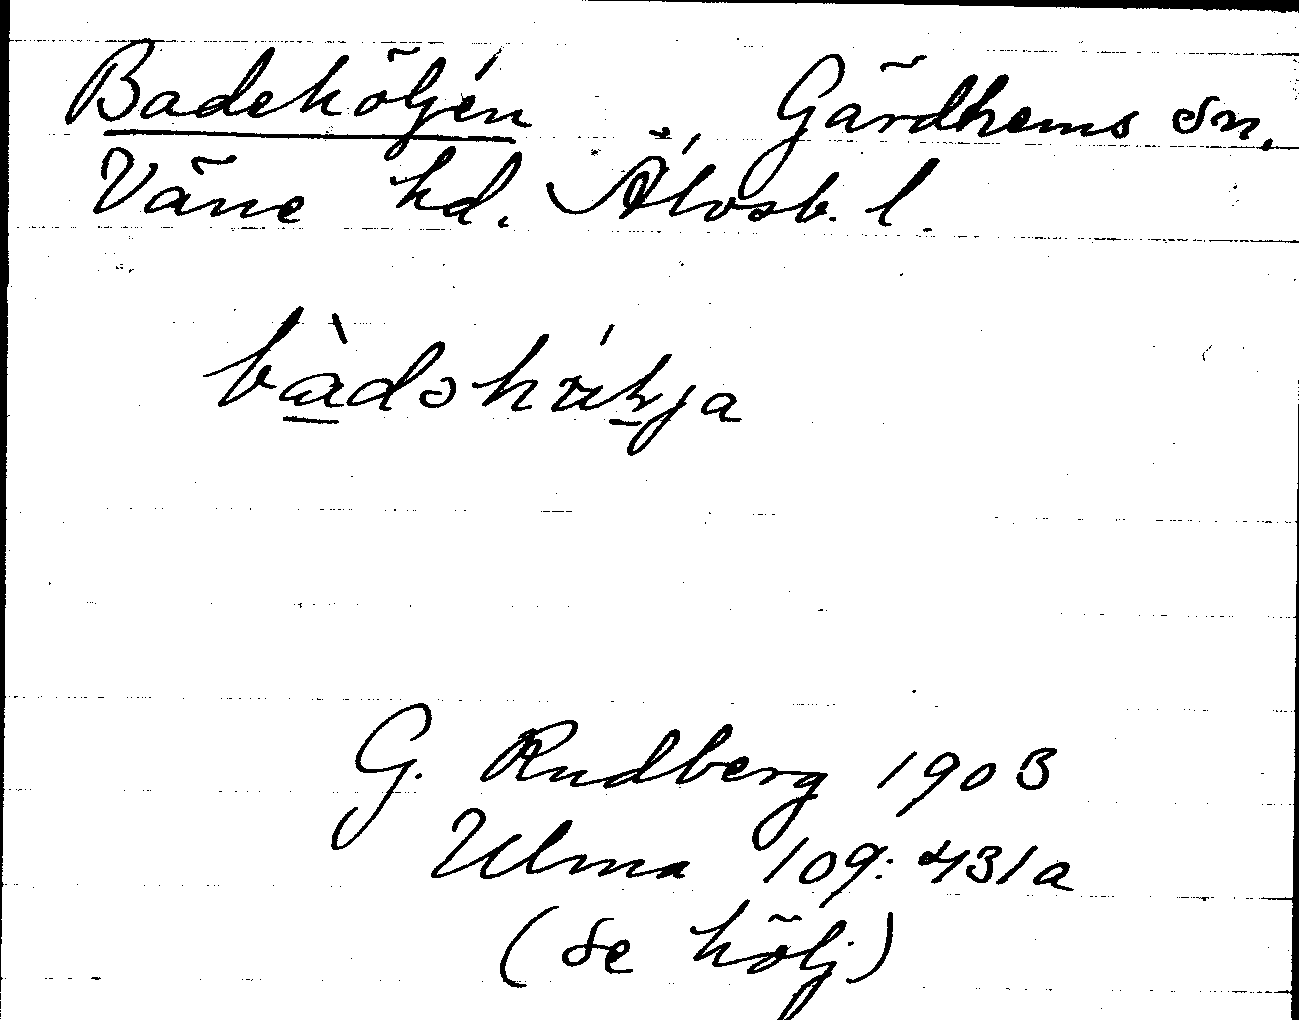 Badehöljen Gärdhems sn,
Väne hd. Älvsb. l.
G. Rudberg 1903
Ulma 109:431a
(se hölj)